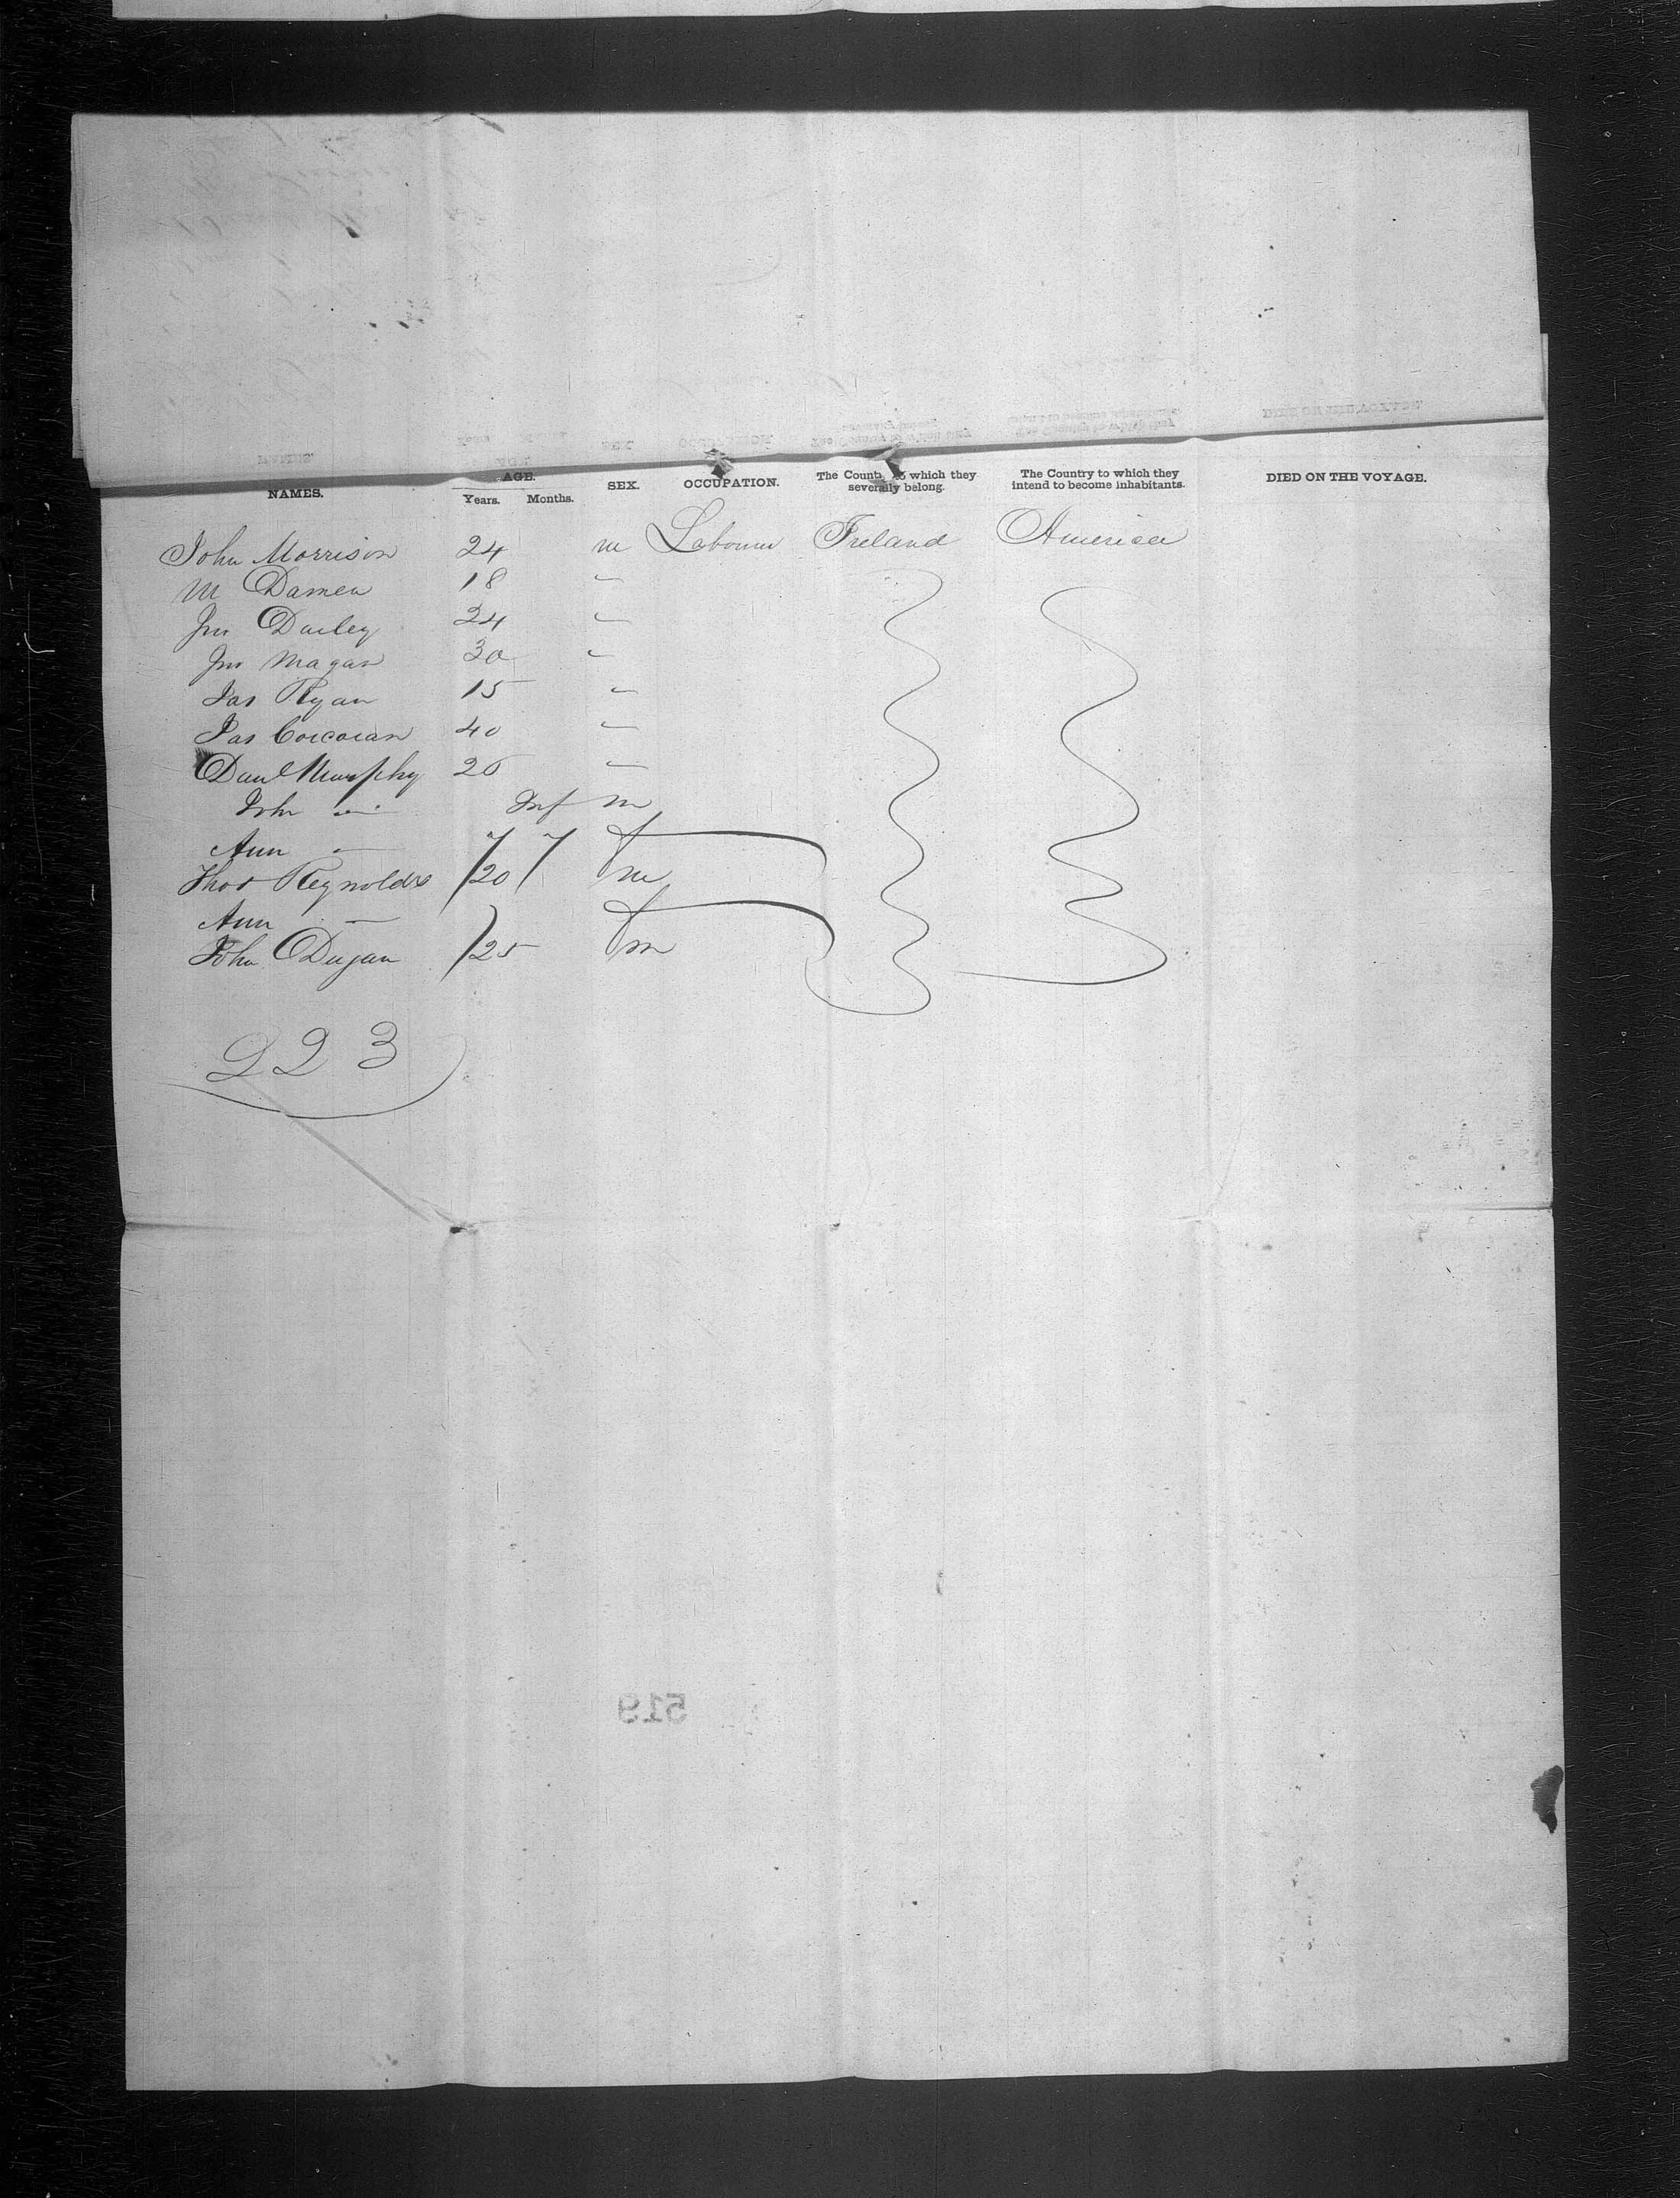 NAMES. AGE. Years. Months. SEX. OCCUPATION. The Country to which they severally belong. The Country to which they intend to become inhabitants. DIED ON THE VOYAGE.
John Morrison 24 m Labourer Ireland America
M Damen 18 "
Jno Dailey 24 "
Jno Magan 30 "
Jas Ryan 15 "
Jas Corcoran 40 "
Danl Murphy 26 "
John — Inf m
Ann — " " f
Thos Reynolds 20 m
Ann — " f
John Dugan 25 m
223
519